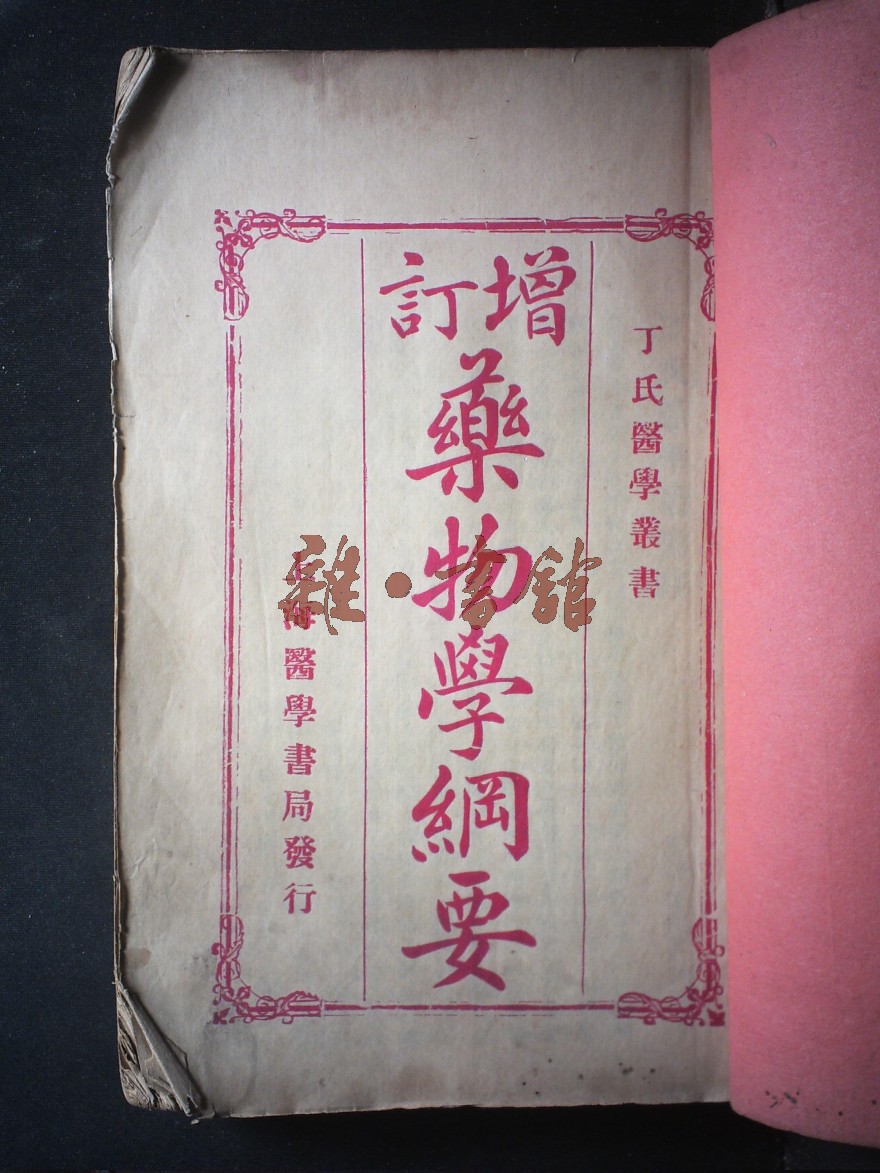 丁氏醫學叢書
增訂
藥物學綱要
上海醫學書局發行
雜·書館